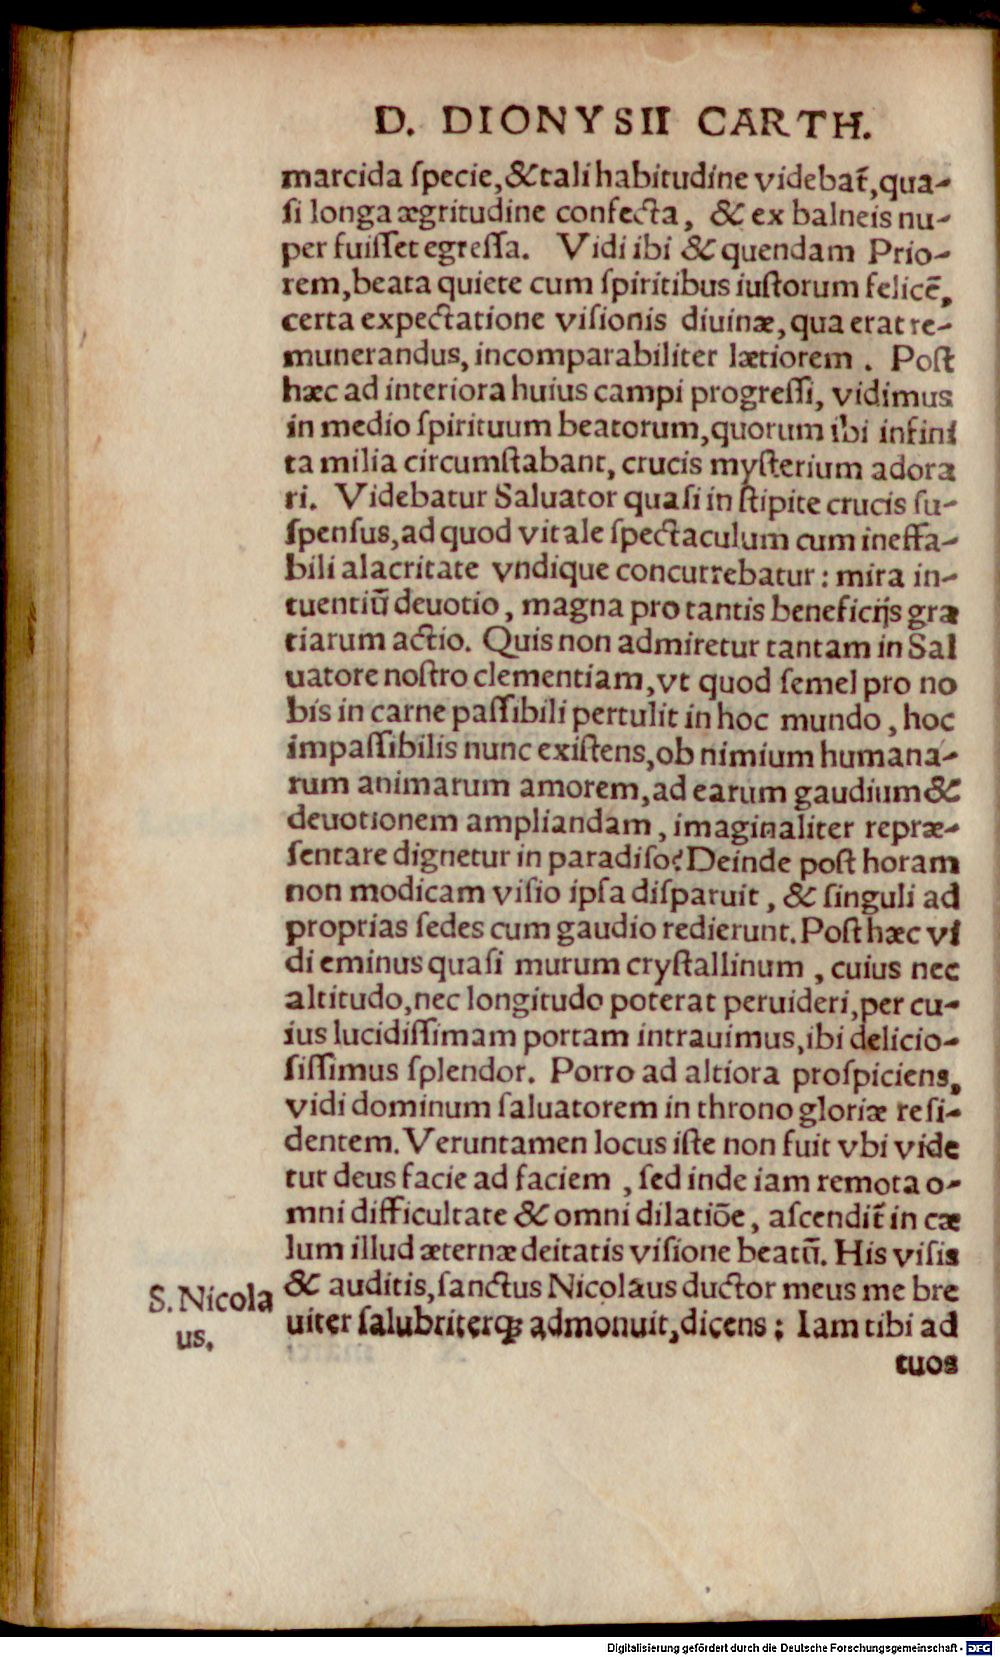 D. DIONYSII CARTH.
marcida ſpecie, & tali habitudine videbat̃, qua-
ſi longa ægritudine confecta, & ex balneis nu-
per fuiſſet egreſſa. Vidi ibi & quendam Prio-
rem, beata quiete cum ſpiritibus iuſtorum felicē,
certa expectatione viſionis diuinæ, qua erat re-
munerandus, incomparabiliter lætiorem. Poſt
hæc ad interiora huius campi progreſſi, vidimus
in medio ſpirituum beatorum, quorum ibi infini
ta milia circumſtabant, crucis myſterium adora
ri. Videbatur Saluator quaſi in ſtipite crucis ſu-
ſpenſus, ad quod vitale ſpectaculum cum ineffa-
bili alacritate vndique concurrebatur: mira in-
tuentiū deuotio, magna pro tantis beneficijs gra
tiarum actio. Quis non admiretur tantam in Sal
uatore noſtro clementiam, vt quod ſemel pro no
bis in carne paſſibili pertulit in hoc mundo, hoc
impaſſibilis nunc exiſtens, ob nimium humana-
rum animarum amorem, ad earum gaudium &
deuotionem ampliandam, imaginaliter repræ-
ſentare dignetur in paradiſo? Deinde poſt horam
non modicam viſio ipſa diſparuit, & ſinguli ad
proprias ſedes cum gaudio redierunt. Poſt hæc vi
di eminus quaſi murum cryſtallinum, cuius nec
altitudo, nec longitudo poterat peruideri, per cu-
ius lucidiſſimam portam intrauimus, ibi delicio-
ſiſſimus ſplendor. Porro ad altiora proſpiciens,
vidi dominum ſaluatorem in throno gloriæ reſi-
dentem. Veruntamen locus iſte non fuit vbi vide
tur deus facie ad faciem, ſed inde iam remota o-
mni difficultate & omni dilatiōe, aſcendit̃ in cæ
lum illud æternæ deitatis viſione beatū. His viſis
& auditis, ſanctus Nicolaus ductor meus me bre
uiter ſalubriterq; admonuit, dicens: Iam tibi ad
S. Nicola
us.
tuos
Digitalisierung gefördert durch die Deutsche Forschungsgemeinschaft - DFG